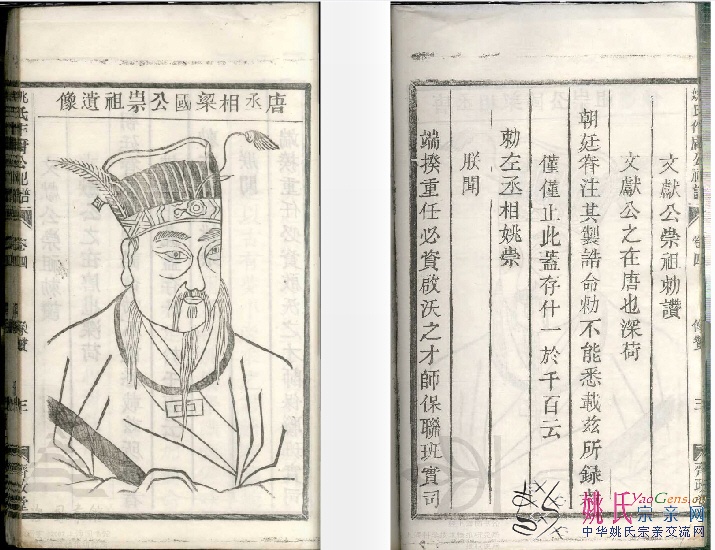 唐丞相梁國公崇祖遺像
卷四
像贊
三
文獻公崇祖勅讚
文獻公之在唐也深荷
朝廷眷注其製誥命勅不能悉載茲所録
僅僅止此蓋存什一於千百云
勅左丞相姚崇
朕聞
端揆重任必資啟沃之才師保聯班實司
卷四
像贊
三
姚氏宗亲网
中华姚氏宗亲交流网